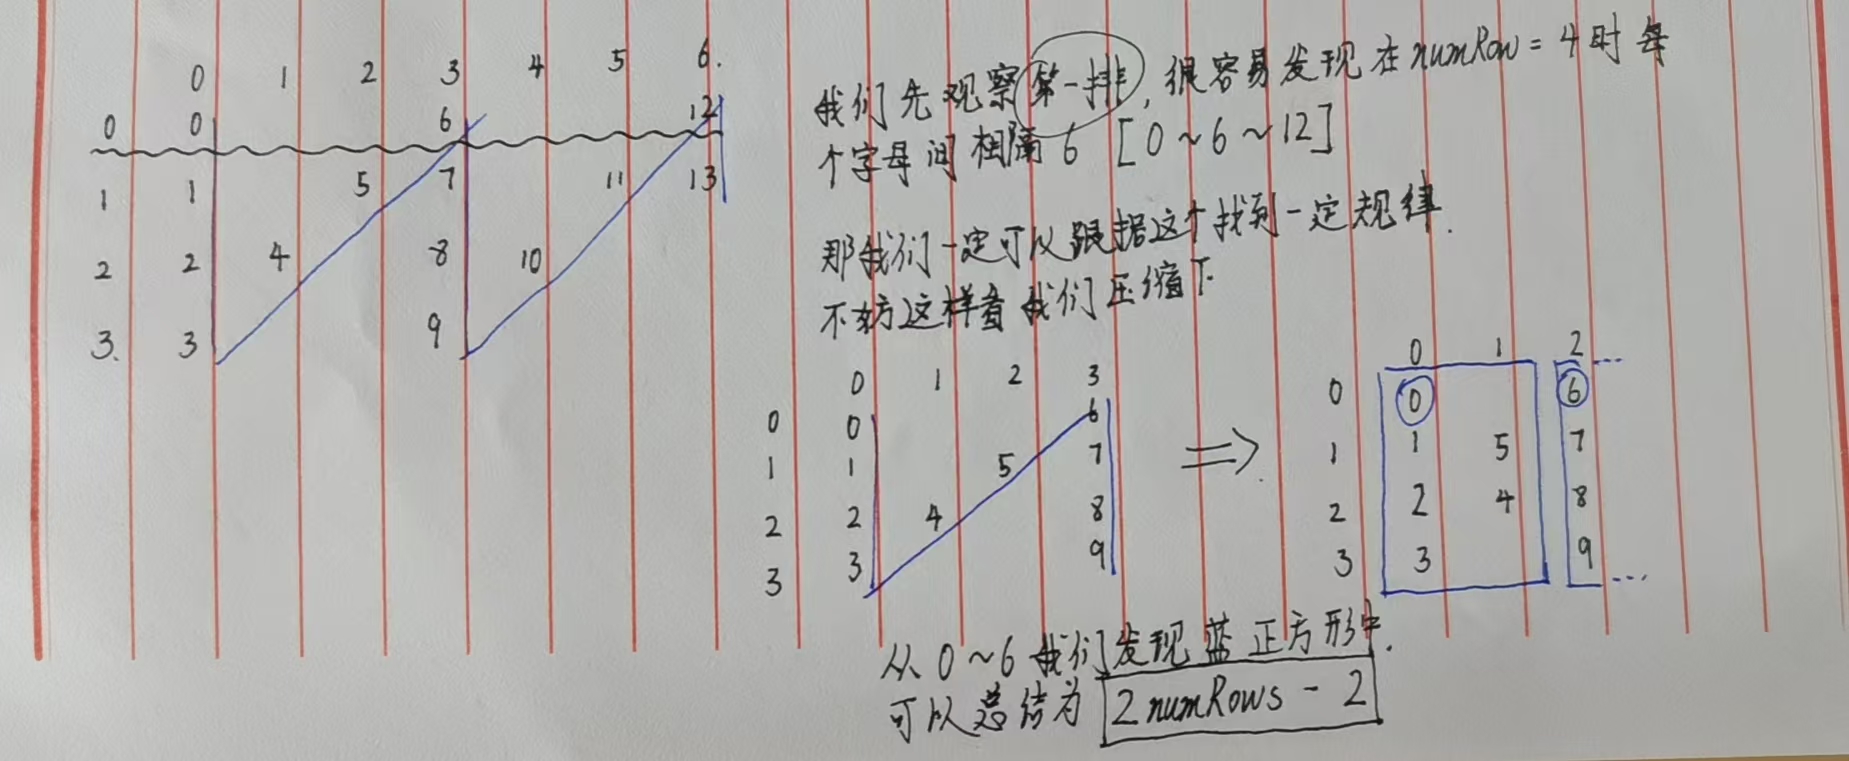 0 1 2 3 4 5 6.
0 0 6 12
1 1 5 7 11 13
2 2 4 8 10
3. 3 9
我们先观察第一排,很容易发现在numRow=4时每
个字母间相隔6 [0~6~12]
那我们一定可以跟据这个找到一定规律.
不妨这样看我们压缩下
0 1 2 3
0 0 6
1 1 5 7
2 2 4 8
3 3 9
⇒
0 1 2 ...
0 0 6
1 1 5 7
2 2 4 8
3 3 9 ...
从0~6我们发现蓝正方形中.
可以总结为 2numRows-2